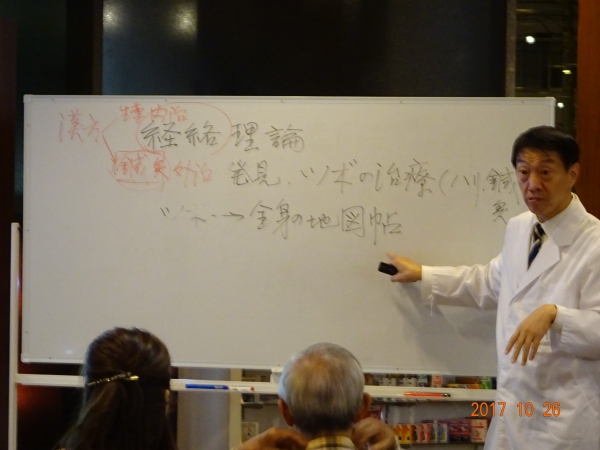 漢方 内治
経絡理論
鍼灸 外治
発見. ツボの治療(ハリ.鍼
灸
ツボ→全身の地図帖
2017 10 26